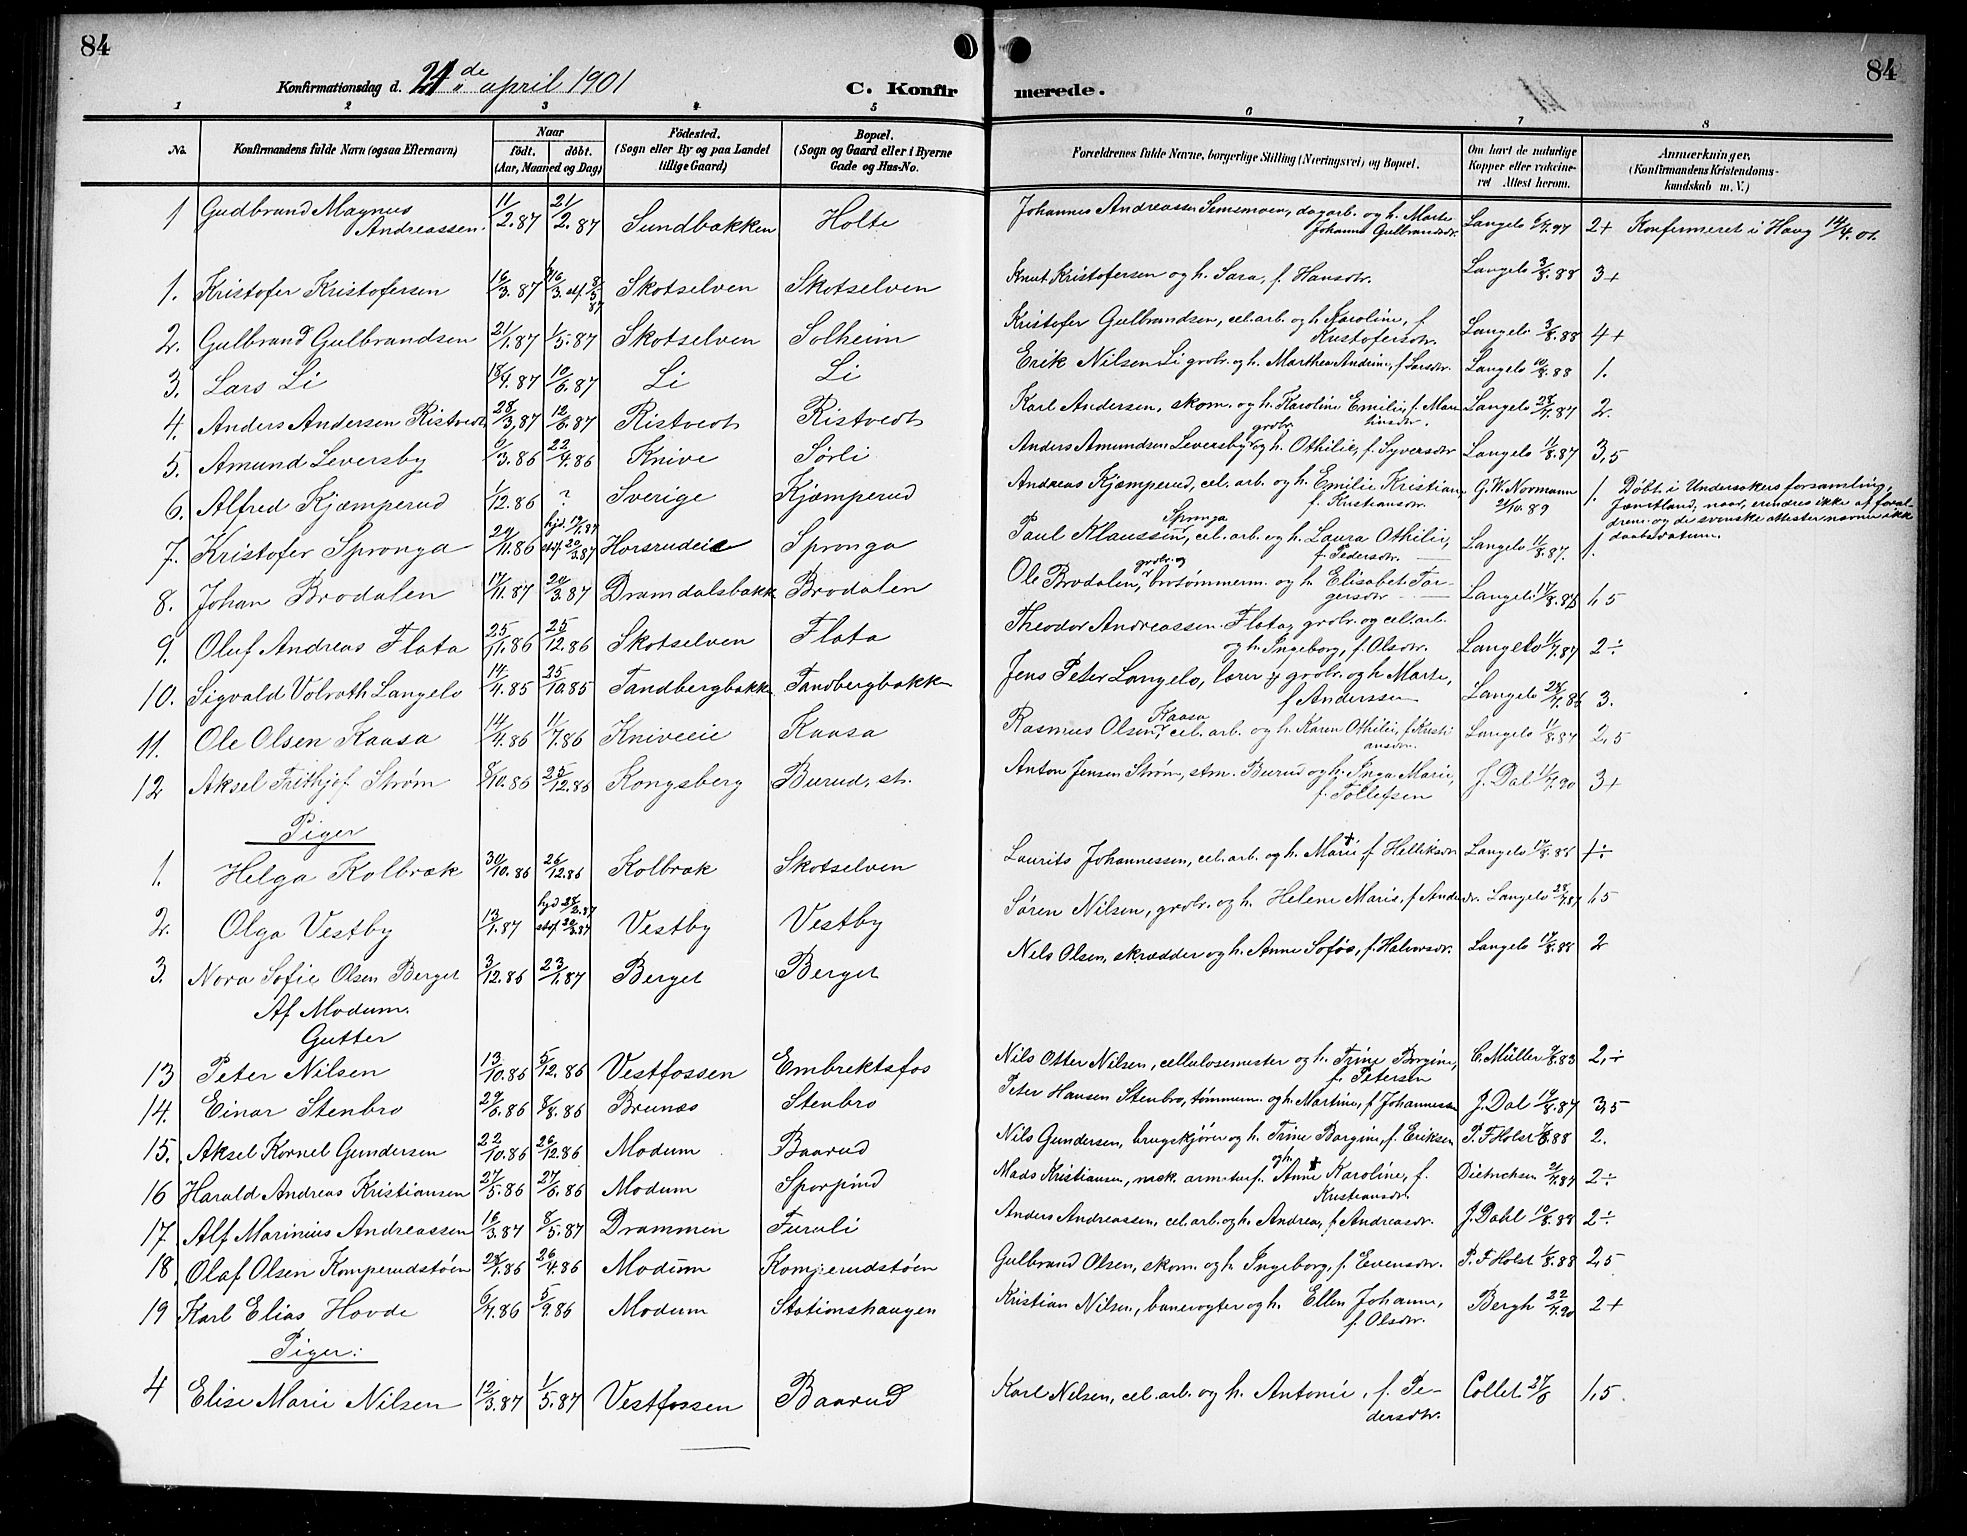 84
84
Konfirmationsdag d. 21de april 1901
C. Konfirmerede.
1 2 3 4 5 6 7 8
No. Konfirmandens fulde Navn (ogsaa Efternavn) Naar født. døbt. (Aar, Maaned og Dag) Fødested. (Sogn eller By og paa Landet tillige Gaard) Bopæl. (Sogn og Gaard eller i Byerne Gade og Hus-No. Forældrenes fulde Navne, borgerlige Stilling (Næringsvei) og Bopæl. Om havt de naturlige Kopper eller vakcineret Attest herom. Anmærkninger. (Konfirmandens Kristendomskundskab m. V.)
1 Gudbrand Magnus Andreassen. 11/2.87 21/2.87 Sundbakken Holte Johannes Andreassen dagarb. og h. Marte Johanne Gulbrandsdr. Langelo 2+ Konfermeret i Haug 14/4.01.
1. Kristofer Kristofersen 16/3.87 Skotselven Skotselven Knut Kristofersen og h. Sara, f. Hansdr. Langelo 3/8.88 3+
2. Gulbrand Gulbrandsen 21/1.87 1/5.87 Skotselven Solheim Kristofer Gulbrandsen, cel. arb. og h. Karoline, f. Kristofersdr. Langelo 3/8.88 4+
3. Lars Li 18/4.87 10/6.87 Li Li Erik Nilsen Li grdbr. og h. Marthea Andrine, f. Larsdr. Langelo 10/8.88 1.
4. Anders Andersen Ristvedt 28/3.87 12/6.87 Ristvedt Ristvedt Karl Andersen, skom. og h. Karoline Emilie, f. Martinsdr. Langelo 28/7.87 2.
5. Amund Leversby 6/3.86 22/4.86 Knive Sørli Anders Amundsen Leversby grdbr. og h. Othilie, f. Syversdr. Langelo 11/8.87 3,5
6. Alfred Kjæmperud 1/12.86 ? Sverige Kjæmperud Andreas Kjæmperud, cel. arb. og h. Emilie Kristian, f. Kristiansdr. G. W. Normann 21/10.89 1. Døbt i Undersøkers forsamling, Jæmtland, naar, erindres ikke af forældrene og de svenske attester nævne ikke daabsdatum.
7. Kristofer Spronga 24/11.86 hjd. 19/1.87 stf. 20/3.87 Horsrudeie Spronga Paul Klaussen Spronga, cel. arb. og h. Laura Othilie, f. Pedersdr. Langelo 11/8.87. 1.
8. Johan Brodalen 17/1.87 20/3.87 Dramdalsbakk Brodalen Ole Brodalen, grdbr. og brotømmerm. og h. Elisabet Torgersdr Langelo 17/8.88 1,5
9. Oluf Andreas Flata 25/11.86 25/12.86 Skotselven Flata Theodor Andreassen Flata, grdbr. og cel. arb. og h. Ingeborg, f. Olsdr. Langelo 11/7.87 2÷
10. Sigvald Volrath Langelo 14/4.85 25/10.85 Tandbergbakk Tandbergbakken Jens Peter Langelo, lærer og grdbr. og h. Marte, f. Anderssen Langelo 28/7.86 3.
11. Ole Olsen Kaasa 14/4.86 11/7.86 Kniveeie Kaasa Rasmus Olsen Kaasa, cel. arb. og h. Karen Othilie, f. Kristiansdr. Langelo 11/8.87 2,5
12 Aksel Frithjof Strøm 8/10.86 25/12.86 Kongsberg Burud, st. Anton Jensen Strøm, stm. Burud og h. Inga Marie, f. Tollefsen J. Dal 11/7.90 3+
Piger
1. Helga Kolbræk 30/10.86 26/12.86 Kolbræk Skotselven Laurits Johannessen, cel. arb. og h. Marie †, f. Helliksdr Langelo 17/8.88 1÷
2. Olga Vestby 13/1.87 Vestby Vestby Søren Nilsen, grdbr. og h. Helene Marie, f. Andersdr. Langelo 28/7.87 1,5
3. Nora Sofie Olsen Berget 3/12.86 23/1.87 Berget Berget Nils Olsen, skrædder og h. Anne Sofie, f. Halvorsdr. Langelo 17/8.88 2
Af Modum.
Gutter
13 Peter Nilsen 13/10.86 5/12.86 Vestfossen Embrektsfos Nils Otter Nilsen, cellulosemester og h. Trine Borgine, f. Petersen C. Müller 2,÷
14. Einar Stenbro 29/6.86 8/8.86 Brunæs Stenbro Peter Hansen Stenbro, tømmerm. og h. Martine, f. Johannessen J. Dal 19/8.87 3,5
15. Aksel Kornel Gundersen 22/10.86 26/12.86 Modum Baarud Nils Gundersen, brugskjører og h. Trine Borgine, f. Eriksen P. F. Holst 7/8.88 2.
16 Harald Andreas Kristiansen 27/5.86 27/6.86 Modum Sporpind Mads Kristiansen, og h. Anne † Karoline, f. Kristiansdr. Dietrichsen 2÷
17. Alf Marinius Andreassen 16/3.87 8/5.87 Drammen Furuli Anders Andreassen, cel. arb. og h. Andrea, f. Andreasdr. J. Dahl 10/8.88 2÷
18 Olaf Olsen Komperudstøen 28/1.86 26/4.86 Modum Komperudstøen Gulbrand Olsen, skom. og h. Ingeborg, f. Evensdr. P. F. Holst 6/8.88 2,5
19 Karl Elias Hovde 6/7.86 5/9.86 Modum Stationshaugen Kristian Nilsen, banevogter og h. Ellen Johanne, f. Olsdtr. Bergh 22/7.90 2+
Piger:
4 Elise Marie Nilsen 12/3.87 1/5.87 Vestfossen Baarud Karl Nilsen, cel. arb. og h. Antonie, f. Pedersdtr. Collet 27/8 1,5.